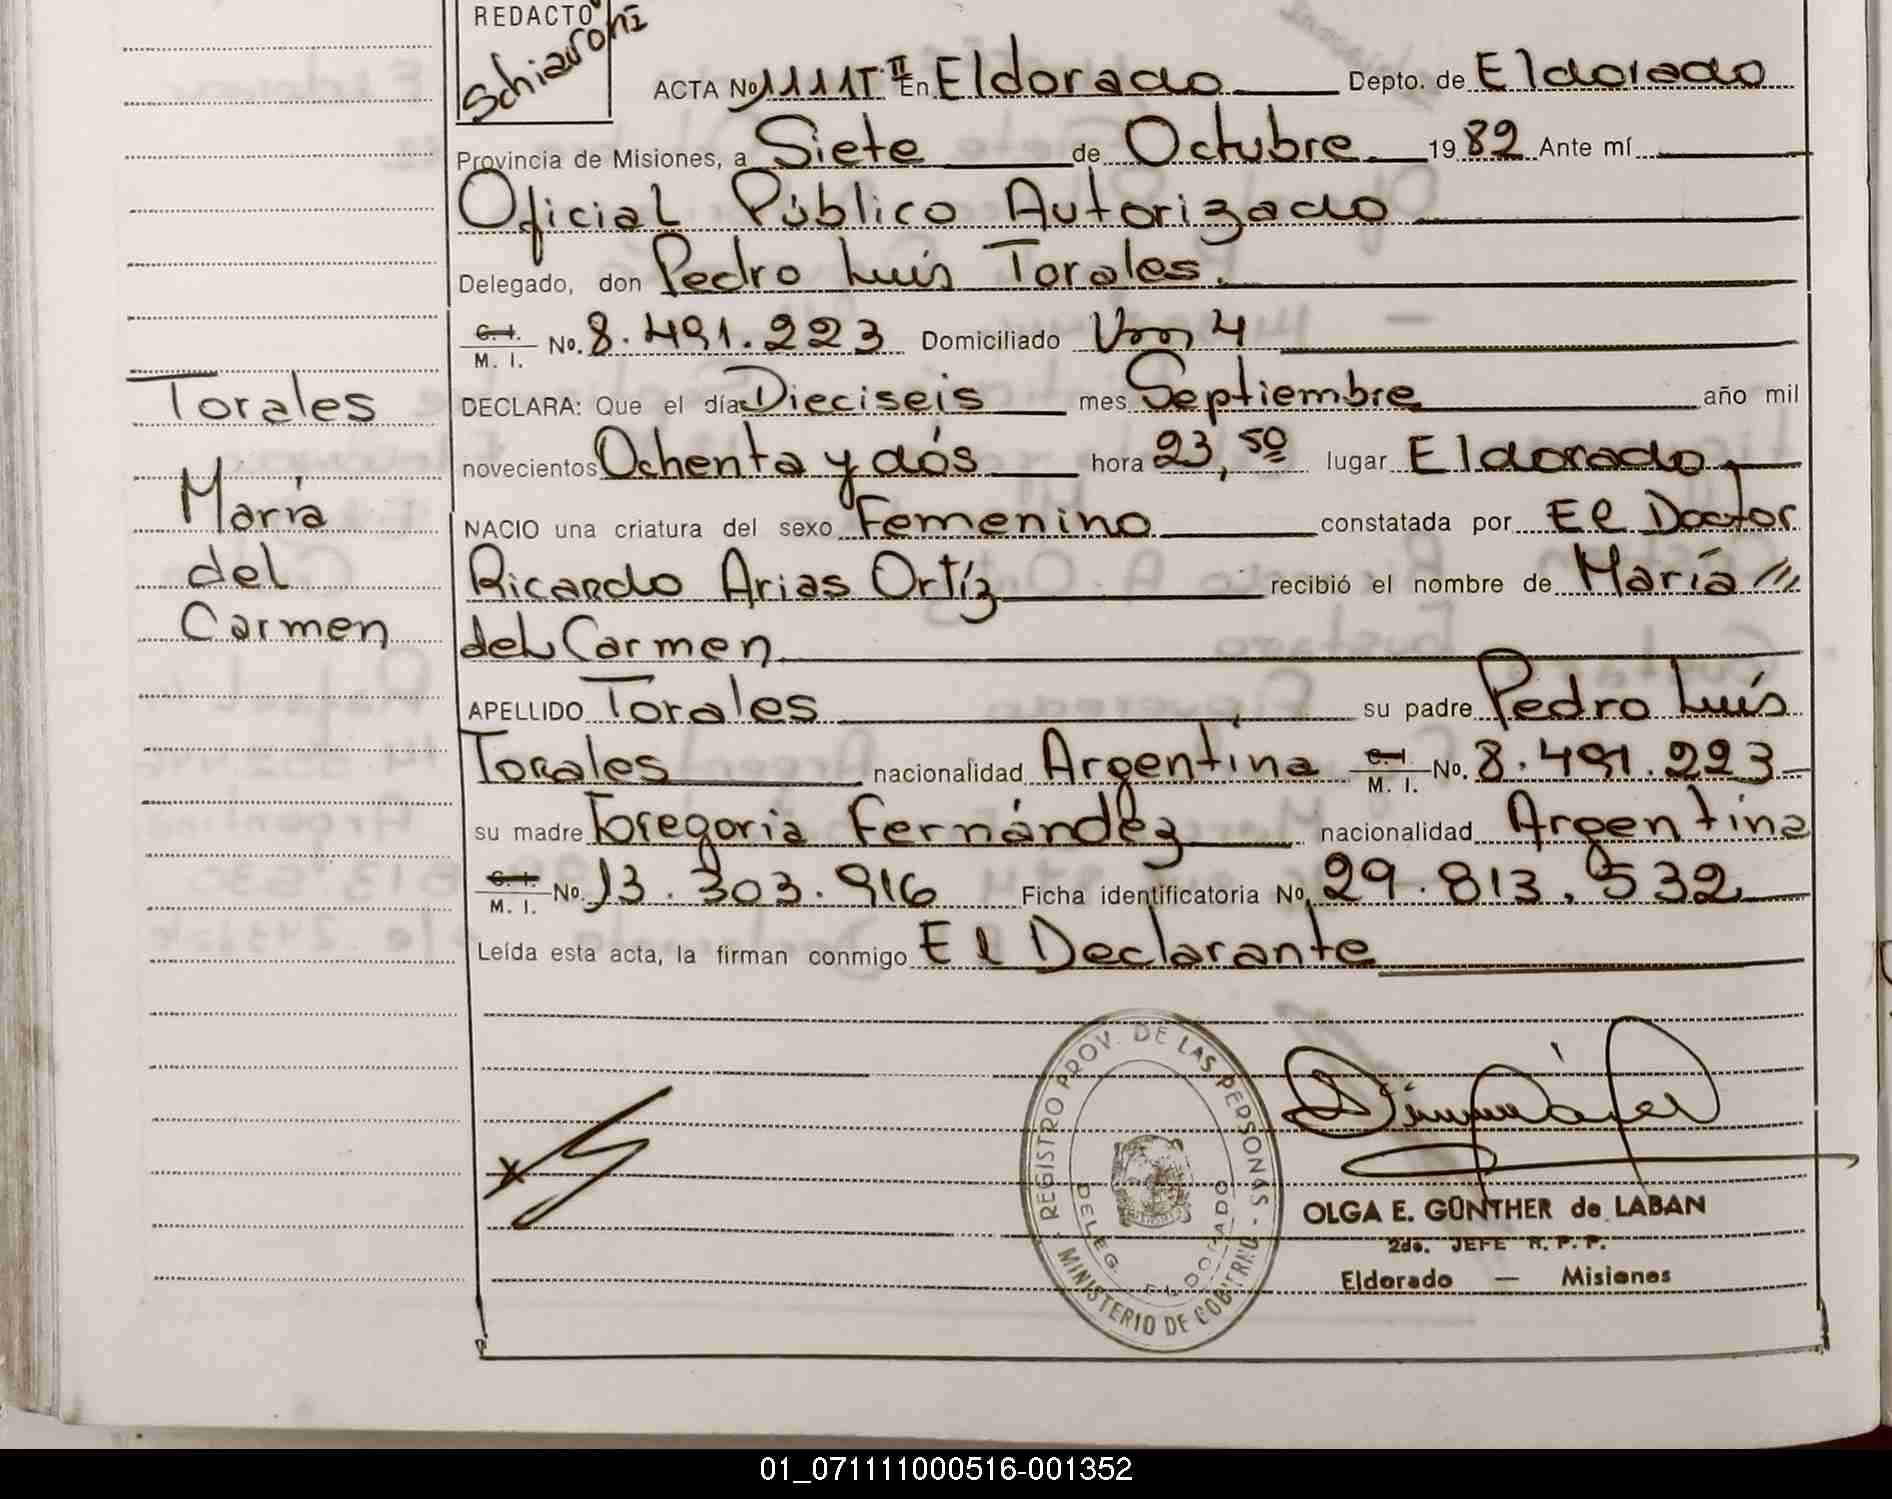 REDACTO
Schiavoni
ACTA No 1111 T. II En Eldorado Depto. de Eldorado
Provincia de Misiones, a Siete de Octubre 1982 Ante mí
Oficial Público Autorizado
Delegado, don Pedro Luís Torales.
C. I. M. I. No. 8.491.223 Domiciliado Km 4
DECLARA: Que el día Dieciseis mes Septiembre año mil
novecientos Ochenta y dós hora 23,50 lugar Eldorado
NACIO una criatura del sexo Femenino constatada por El Doctor
Ricardo Arias Ortíz recibió el nombre de María
del Carmen
APELLIDO Torales su padre Pedro Luís
Torales nacionalidad Argentina C. I. M. I. No. 8.491.223
su madre Gregoria Fernández nacionalidad Argentina
C. I. M. I. No. 13.303.916 Ficha identificatoria No. 29.813.532
Leída esta acta, la firman conmigo El Declarante
Torales
María
del
Carmen
x
REGISTRO PROV. DE LAS PERSONAS - MINISTERIO DE GOBIERNO -
DELEG. ELDORADO
OLGA E. GÜNTHER de LABAN
2do. JEFE R. P. P.
Eldorado — Misiones
01_071111000516-001352